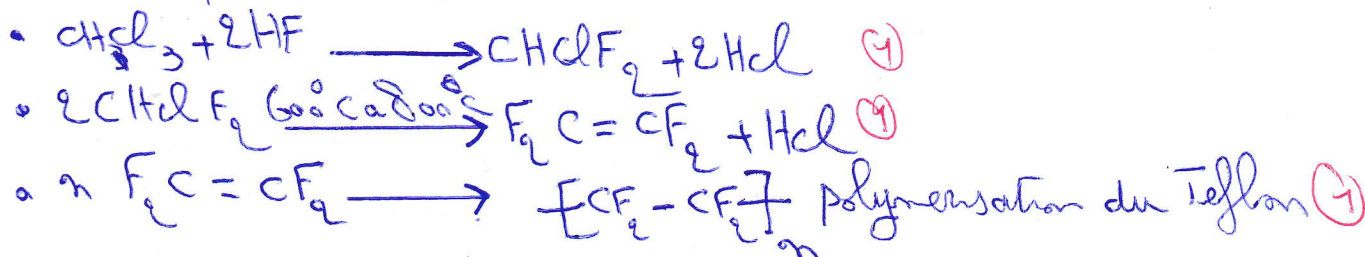 • CHCl₃ + 2HF ⟶ CHClF₂ + 2HCl ①
• 2CHClF₂ 600°C à 800°C ⟶ F₂C = CF₂ + HCl ①
• n F₂C = CF₂ ⟶ -[CF₂ - CF₂]-ₙ polymerisation du Teflon ①